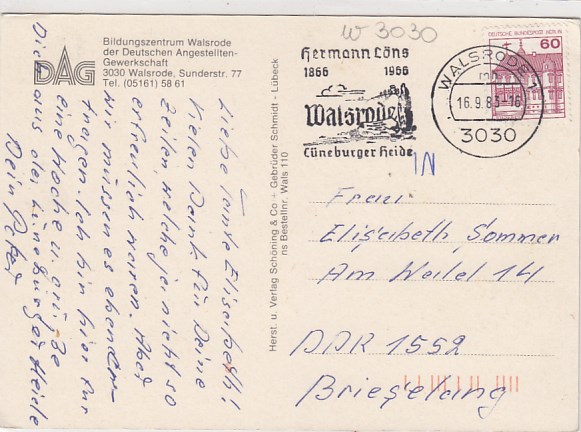 W 3030
Bildungszentrum Walsrode
der Deutschen Angestellten-
Gewerkschaft
3030 Walsrode, Sunderstr. 77
Tel. (05161) 58 61
DAG
Hermann Löns
1866 1966
Walsrode
Lüneburger Heide
WALSRODE 1
16.9.83-16
3030
DEUTSCHE BUNDESPOST BERLIN
60
IN
Liebe Tante Elisabeth!
Vielen Dank für Deine
Zeilen, welche ja nicht so
erfreulich waren. Aber
wir müssen es eben er-
tragen. Ich bin hier für
eine Woche u. grüße
Dich aus der Lüneburger Heide
Dein Peter
Herst. u. Verlag Schöning & Co + Gebrüder Schmidt - Lübeck
ns Bestellnr. Wals 110
Frau
Elisabeth Sommer
Am Weitel 14
DDR 1552
Brieselang